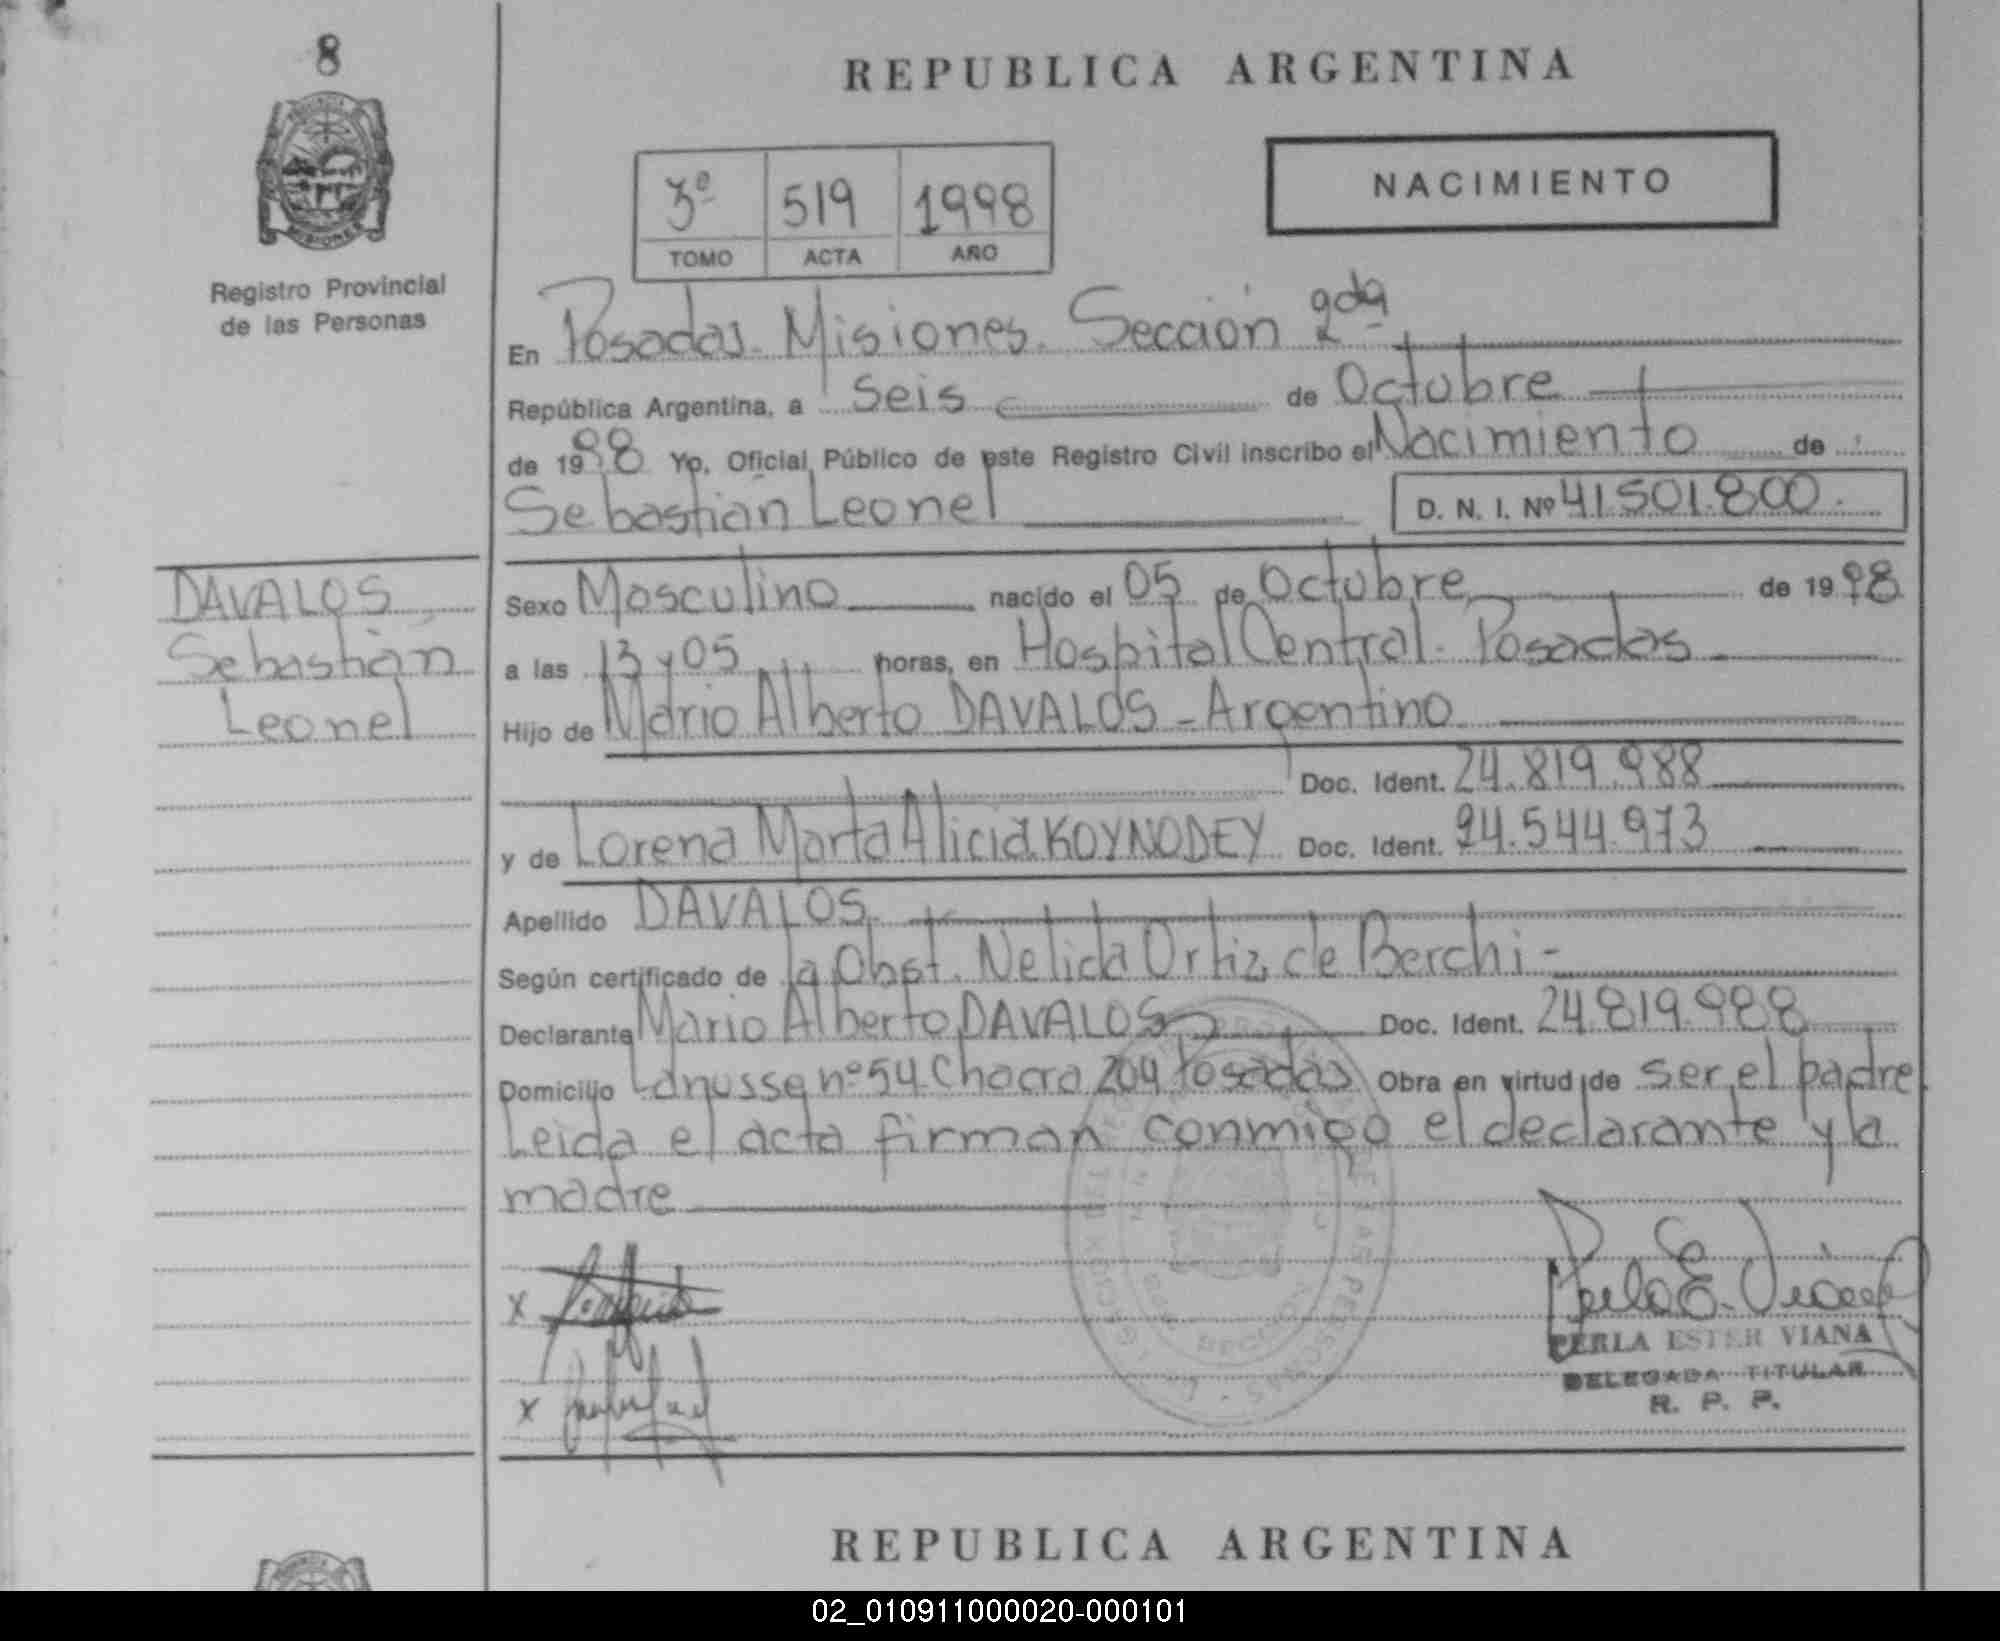 8
REPUBLICA ARGENTINA
3º 519 1998
TOMO ACTA AÑO
NACIMIENTO
Registro Provincial
de las Personas
En Posadas. Misiones. Sección 2da
República Argentina, a Seis de Octubre
de 1998 Yo, Oficial Público de este Registro Civil inscribo el Nacimiento de
Sebastián Leonel D. N. I. Nº 41.501.800.
DAVALOS
Sebastián
Leonel
Sexo Masculino nacido el 05 de Octubre de 1998
a las 13 y 05 horas, en Hospital Central. Posadas
Hijo de Mario Alberto DAVALOS - Argentino
Doc. Ident. 24.819.988
y de Lorena Marta Alicia KOYNODEY Doc. Ident. 24.544.973
Apellido DAVALOS
Según certificado de la Obst. Nelida Ortiz de Berchi -
Declarante Mario Alberto DAVALOS Doc. Ident. 24.819.988
Domicilio Lanusse nº 54 Chacra 204 Posadas Obra en virtud de ser el padre
Leida el acta firman conmigo el declarante y la
madre
x
x
Perla E. Viana
PERLA ESTER VIANA
DELEGADA TITULAR
R. P. P.
REPUBLICA ARGENTINA
02_010911000020-000101